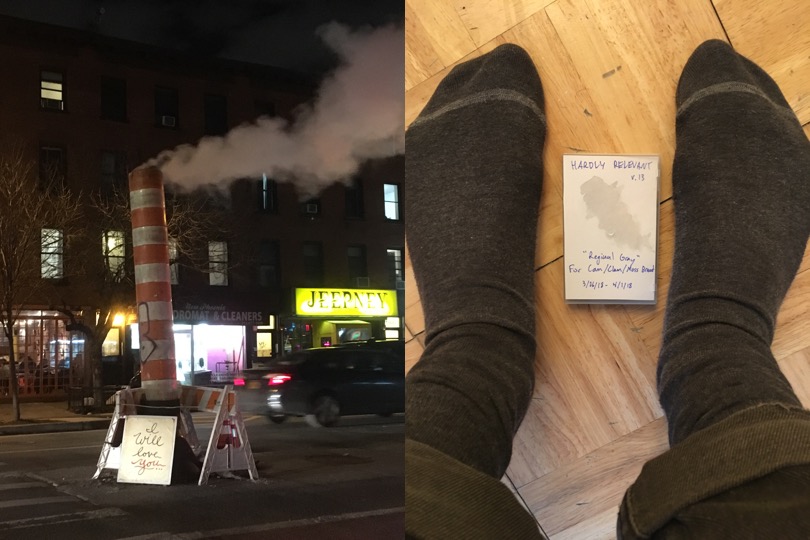 OROMAT & CLEANERS
JEEPNEY
I
Will
love
you
HARDLY RELEVANT
v. 13
"Regional Gray"
For Cam/Clam/Moss Brand
3/26/18 - 4/1/18